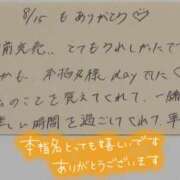 8/15 もありがとう♡
前完売。。とてもうれしかったで
かも、本指名様 day でた
のことを覚えてくれて、一緒
しい時間を過ごしてくれて、幸
本指名とっても嬉しいです
ありがとうございます